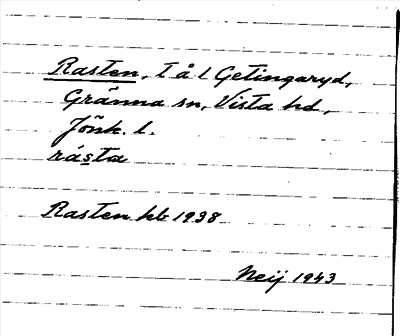 Rasten, t å l Getingaryd,
Gränna sn, Vista hd,
Jönk. l.
rásta
Rasten hb 1938
Neij 1943